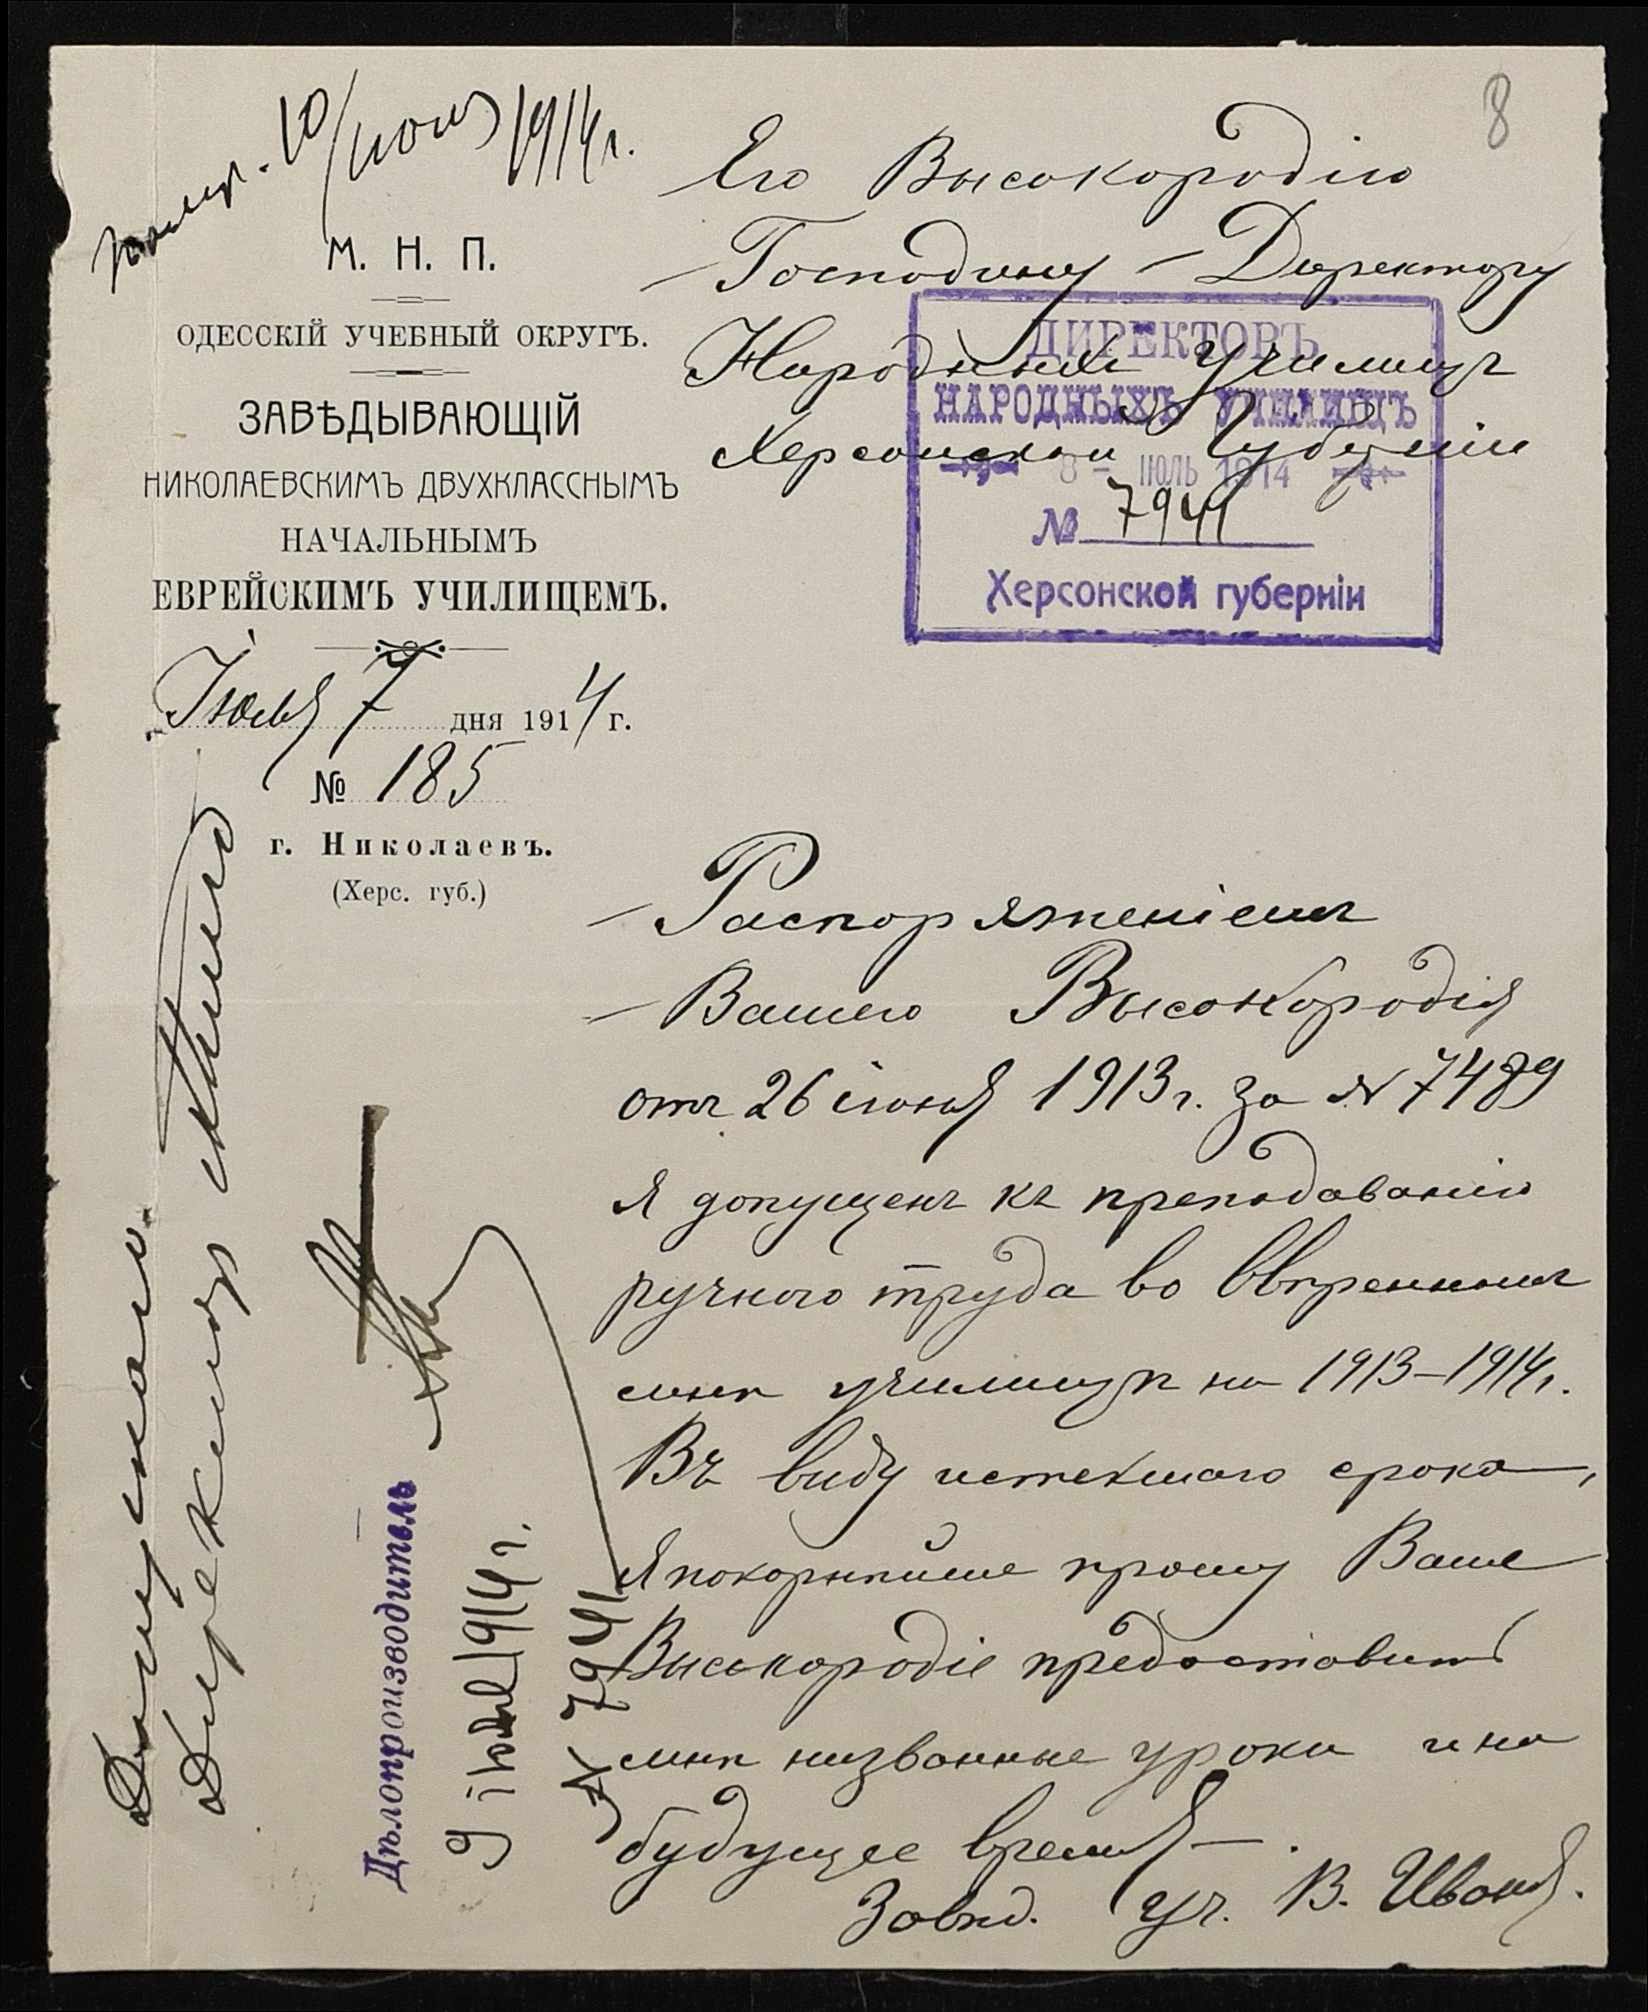 8
10/июля 1914 г.
М. Н. П.
ОДЕССКІЙ УЧЕБНЫЙ ОКРУГЪ.
ЗАВѢДЫВАЮЩІЙ
НИКОЛАЕВСКИМЪ ДВУХКЛАССНЫМЪ
НАЧАЛЬНЫМЪ
ЕВРЕЙСКИМЪ УЧИЛИЩЕМЪ.
Іюля 7 дня 1914 г.
№ 185
г. Николаевъ.
(Херс. губ.)
Его Высокородію
Господину Директору
Народныхъ Училищъ
Херсонской Губерніи
ДИРЕКТОРЪ
НАРОДНЫХЪ УЧИЛИЩЪ
8 - ІЮЛЬ 1914
№ 7941
Херсонской губерніи
Распоряженіемъ
Вашего Высокородія
отъ 26 іюня 1913 г. за № 7489
я допущенъ къ преподаванію
ручного труда во ввѣренномъ
мнѣ училищѣ на 1913–1914 г.
Въ виду истекшаго срока,
я покорнѣйше прошу Ваше
Высокородіе предоставить
мнѣ названные уроки и на
будущее время.
Завѣд. уч. В. Иваня.
Допускаю.
Директор
Дѣлопроизводитель
9 іюля 1914 г.
№ 7941